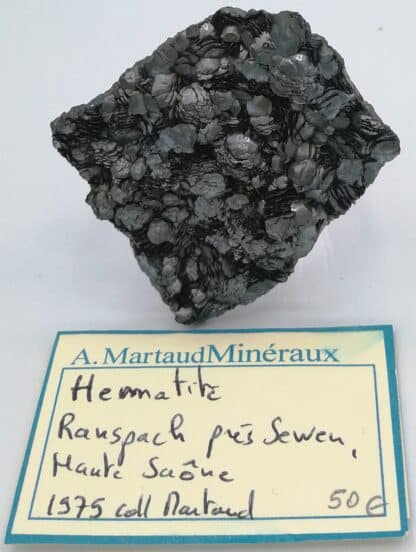 A. Martaud Minéraux
Hematite
Ranspach près Sewen,
Haute Saône
1975 coll Martaud 50 €